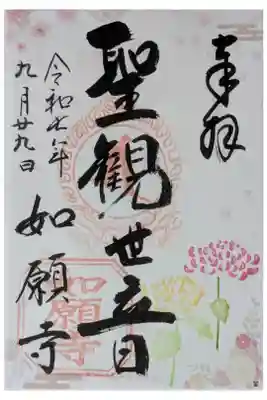 奉拝
聖観世音
如願寺
令和七年
九月廿九日
如願寺